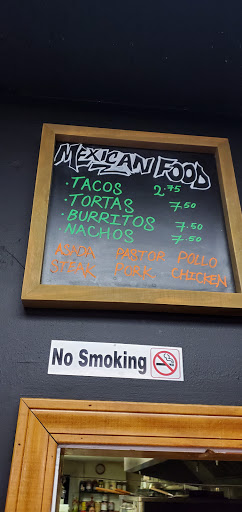 MEXICAN FOOD
· TACOS 2.75
· TORTAS 7.50
· BURRITOS 7.50
· NACHOS 7.50
ASADA PASTOR POLLO
STEAK PORK CHICKEN
No Smoking